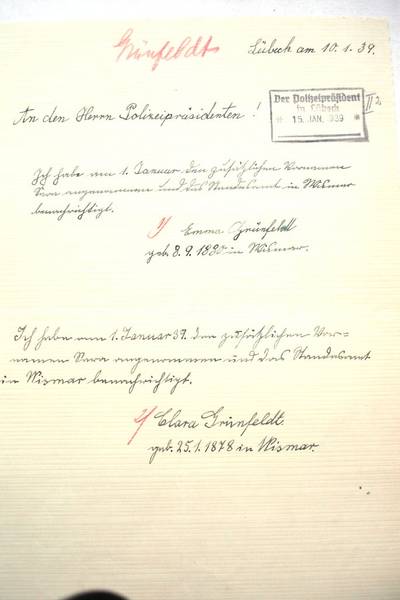 Grünfeldt
Lübeck am 10.1.39.
Der Polizeipräsident
in Lübeck
* 15. JAN. 1939 *
II 2
An den Herrn Polizeipräsidenten!
Ich habe am 1. Januar den zusätzlichen Vornamen
Sara angenommen und das Standesamt in Wismar
benachrichtigt.
1/ Emma Grünfeldt
geb. 8.9. in Wismar.
Ich habe am 1. Januar 39. den zusätzlichen Vor-
namen Sara angenommen und das Standesamt
in Wismar benachrichtigt.
2/ Clara Grünfeldt.
geb. 25.1.1878 in Wismar.